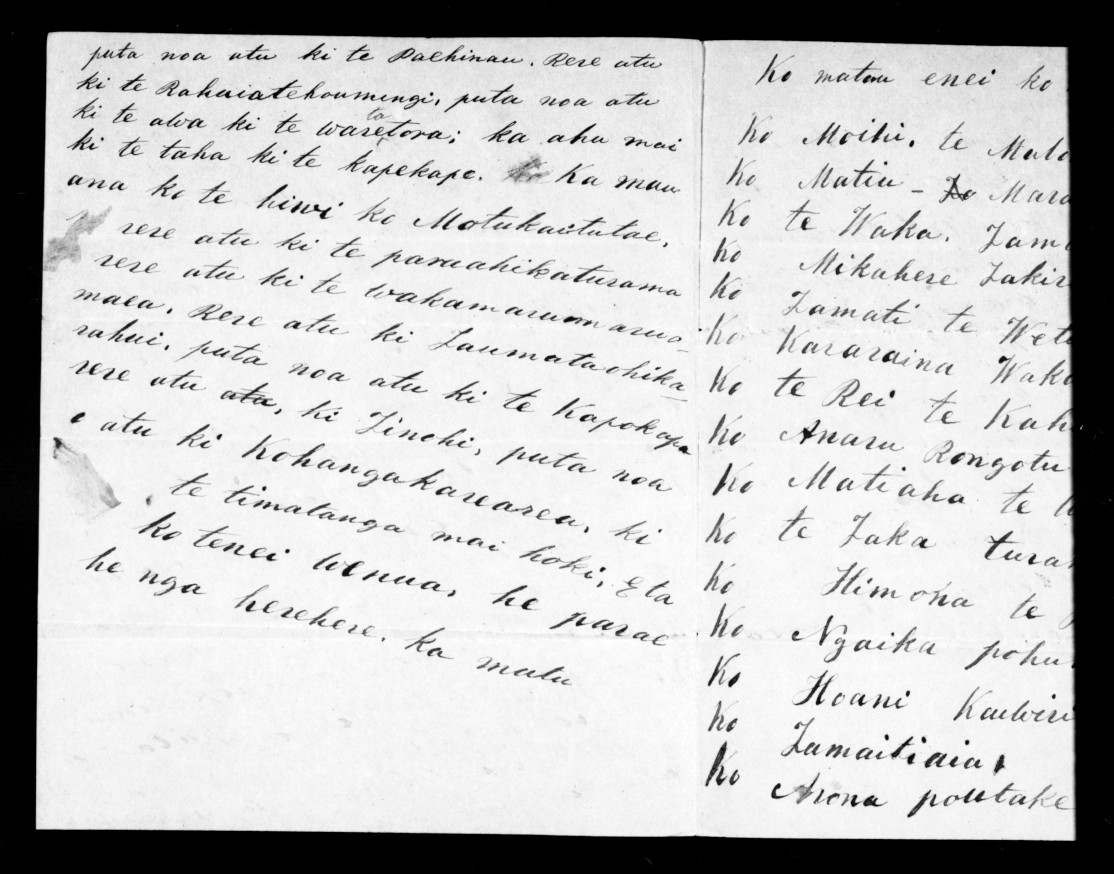 puta noa atu ki te Paehinau. Rere atu
ki te Rahuiatehoumingi, puta noa atu
ki te awa ki te waretatora; ka ahu mai
ki te taha ki te kapekape. Ka mau
ana ko te hiwi ko Motukaitutae,
rere atu ki te paraahikaturama
rere atu ki te wakamarumaru
maea. Rere atu ki Taumataohika-
rahui, puta noa atu ki te Kapokapo
rere atu atu, ki Tinohi, puta noa
e atu ki Kohangakarearea, ki
te timatanga mai hoki, Eta
ko tenei wenua, he parae
he nga herehere. ka mutu
Ko matou enei ko
Ko Moihi, te Mato
Ko Matiu - Ko Mara
Ko te Waka. Tam
Ko Mikahere Takir
Ko Tamati te Wet
Ko Kararaina Waka
Ko te Rei te Kah
Ko Anaru Rongotu
Ko Matiaha te
Ko te Taka tura
Ko Himona te
Ko Ngaika pohu
Ko Hoani Kauwiri
Ko Tamaitiaia,
Ko Arona poutake